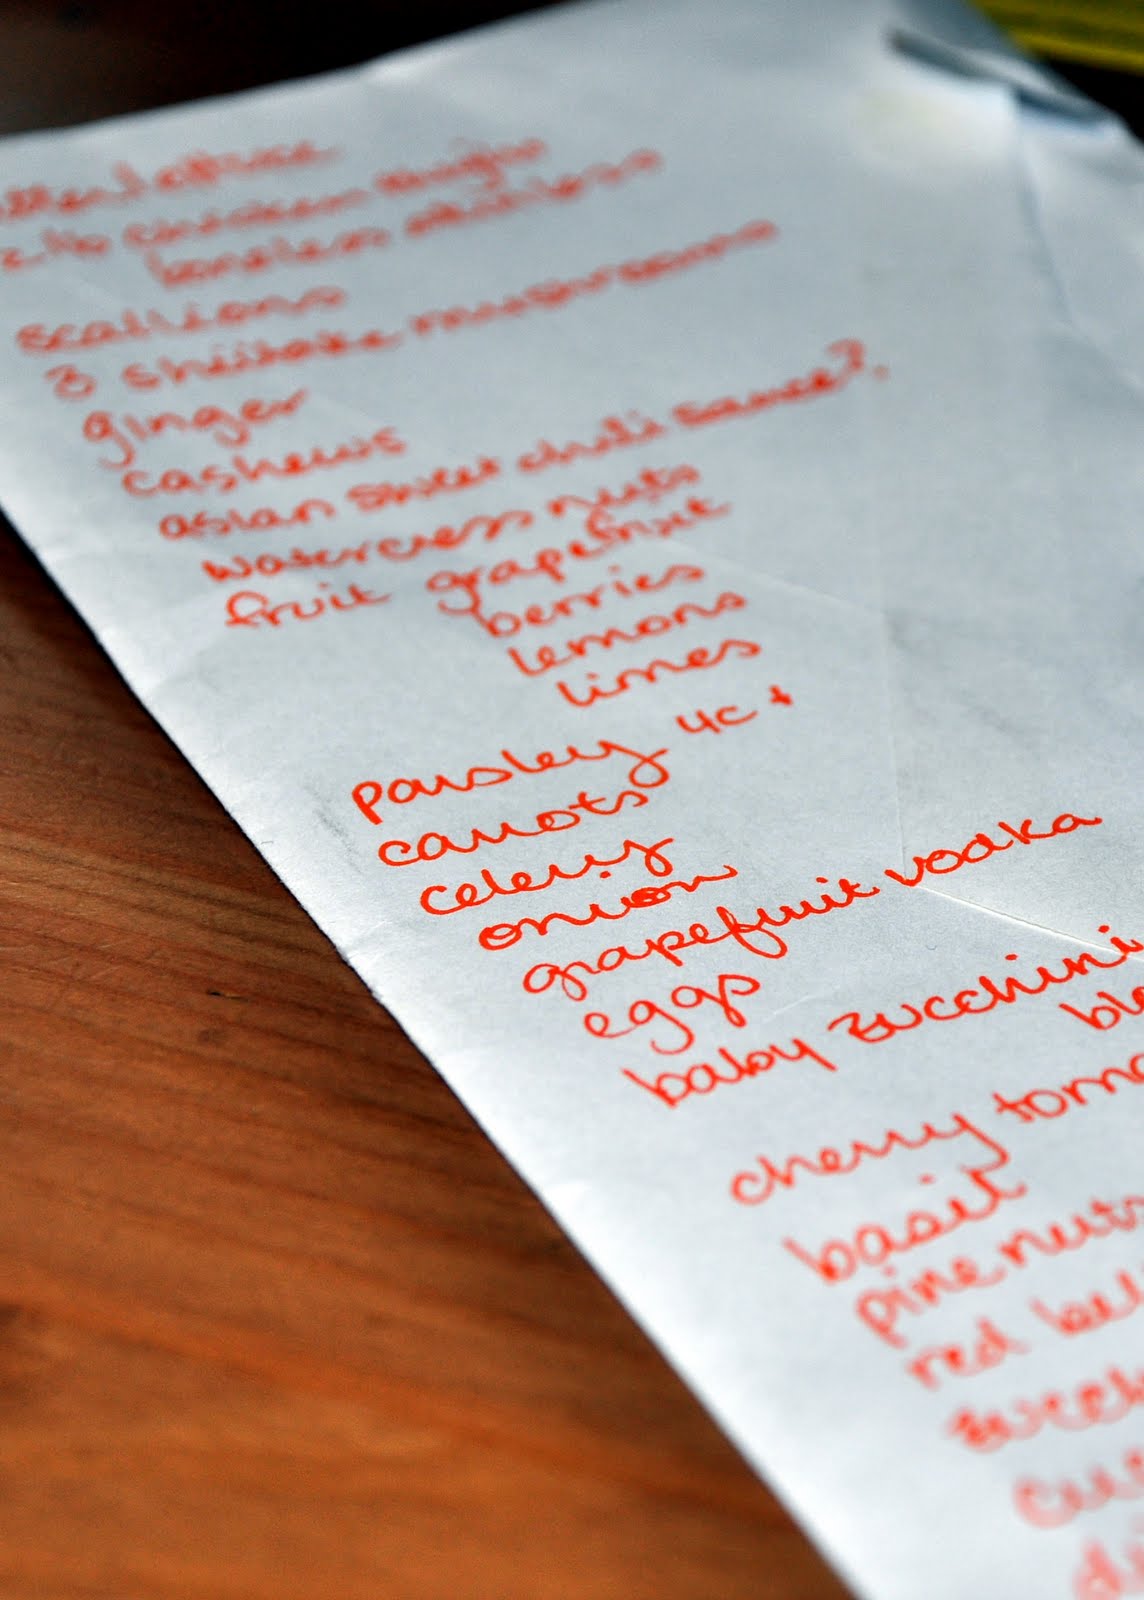 lettuce
chicken thighs
boneless skinless
scallions
3 shiitake mushrooms
ginger
cashews
asian sweet chili sauce?
watercress nuts
fruit grapefruit
berries
lemons
limes
parsley 4c +
carrots
celery
onion
grapefruit vodka
eggs
baby zucchini
cherry toma
basil
pine nuts
red bell